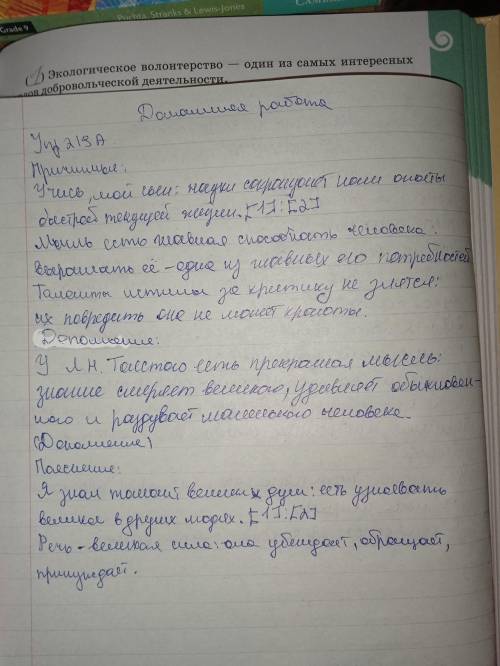 Grade 9
Pochta, Stranks & Lewis-Jones
А) Экологическое волонтерство — один из самых интересных
добровольческой деятельности.
Домашняя работа
Упр 219А
Причинные:
Учись, мой сын: науки сокращают нам опыты
быстрой текущей жизни. [1]:[2]
Мысль есть главная способность человека:
выражать её - одна из главных его потребностей
Таланты истины за критику не злятся:
их повредить она не может красоты.
Дополнение:
У Л.Н. Толстого есть прекрасная мысль:
знание смиряет великого, удивляет обыкновен-
ного и раздувает маленького человека.
(Дополнение)
Пояснение:
Я знал талант великих душ: есть узнавать
великое в других людях. [1]:[2]
Речь - великая сила: она убеждает, обращает,
принуждает.